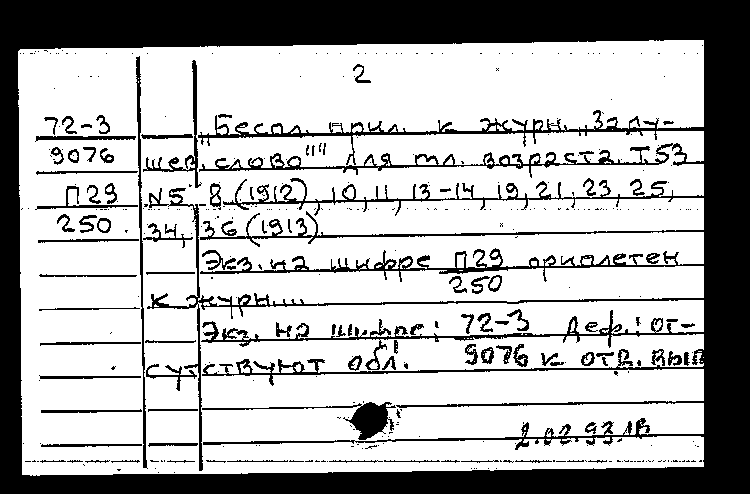 2
72-3 „Беспл. прил. к журн. „Заду-
9076 шев. слово"" для мл. возраста. Т.53
П29 N5 8 (1912), 10, 11, 13-14, 19, 21, 23, 25,
250. 34, 36 (1913).
Экз. на шифре П29 приплетен
250
к журн....
Экз. на шифре: 72-3 Деф.: от-
сутствуют обл. 9076 к отд. вып
2.02.93.